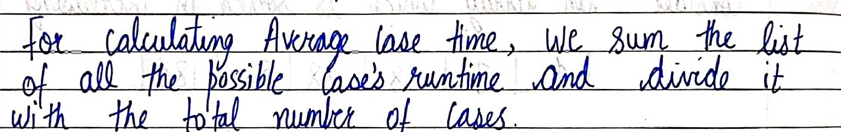 For calculating Average Case time, we sum the list
of all the possible Case's runtime and divide it
with the total number of Cases.